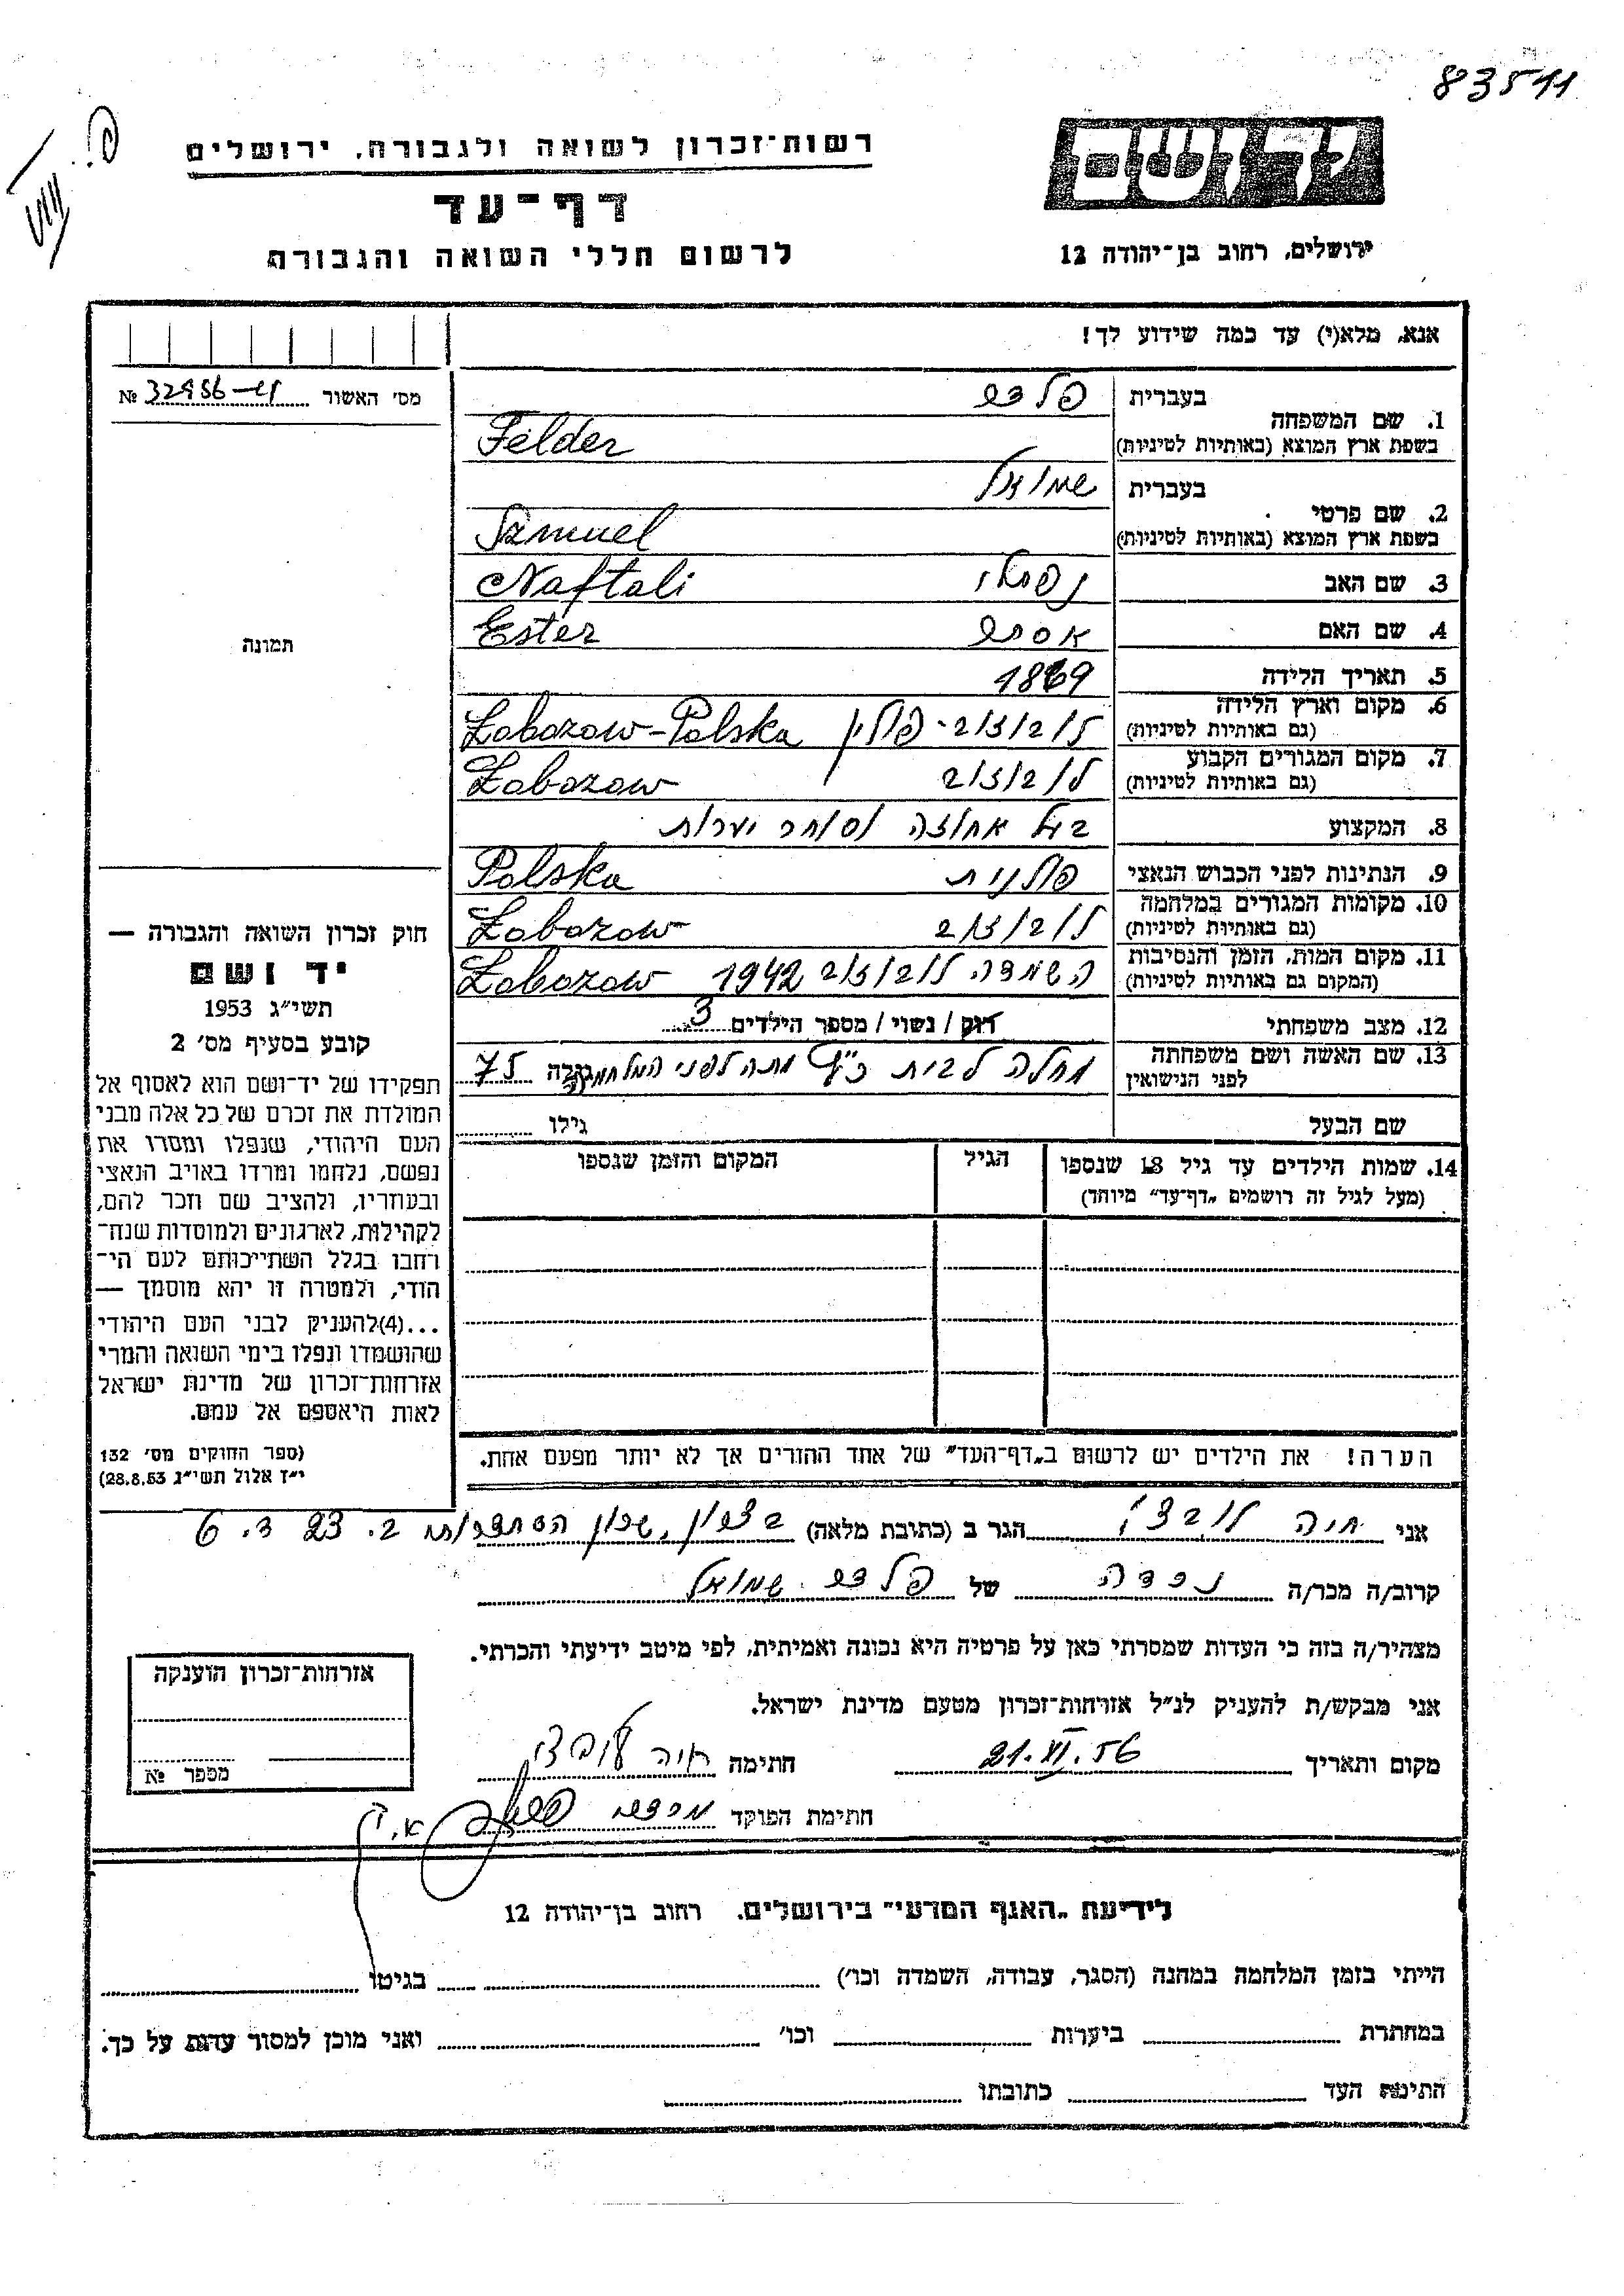 83511
יד ושם
רשות־זכרון לשואה ולגבורה, ירושלים
דף־עד
לרשום חללי השואה והגבורה
ירושלים, רחוב בן־יהודה 12
אנא, מלא(י) עד כמה שידוע לך!
מס' האשור №
1. שם המשפחה
בעברית פלדר
בשפת ארץ המוצא (באותיות לטיניות) Felder
2. שם פרטי
בעברית שמואל
בשפת ארץ המוצא (באותיות לטיניות) Szmuel
3. שם האב נפתלי Naftali
4. שם האם אסתר Ester
5. תאריך הלידה 1869
6. מקום וארץ הלידה
(גם באותיות לטיניות) לובוזוב - פולין Łobozow - Polska
7. מקום המגורים הקבוע
(גם באותיות לטיניות) לובוזוב Łobozow
8. המקצוע בעל אחוזה וסוחר יערות
9. הנתינות לפני הכבוש הנאצי פולנית Polska
10. מקומות המגורים במלחמה
(גם באותיות לטיניות) לובוזוב Łobozow
11. מקום המות, הזמן והנסיבות
(המקום גם באותיות לטיניות) השמדה לובוזוב 1942 Łobozow
12. מצב משפחתי רוק / נשוי / מספר הילדים 3
13. שם האשה ושם משפחתה
לפני הנישואין מחלה לבית כ"ץ מתה לפני המלחמה גילה 75
שם הבעל גילו
14. שמות הילדים עד גיל 18 שנספו
(מעל לגיל זה רושמים „דף־עד" מיוחד)
הגיל
המקום והזמן שנספו
הערה! את הילדים יש לרשום ב„דף־העד" של אחד ההורים אך לא יותר מפעם אחת.
תמונה
חוק זכרון השואה והגבורה —
יד ושם
תשי"ג 1953
קובע בסעיף מס' 2
תפקידו של יד־ושם הוא לאסוף אל
המולדת את זכרם של כל אלה מבני
העם היהודי, שנפלו ומסרו את
נפשם, נלחמו ומרדו באויב הנאצי
ובעוזריו, ולהציב שם וזכר להם,
לקהילות, לארגונים ולמוסדות שנח־
רבו בגלל השתייכותם לעם הי־
הודי, ולמטרה זו יהא מוסמך —
...(4)להעניק לבני העם היהודי
שהושמדו ונפלו בימי השואה והמרי
אזרחות־זכרון של מדינת ישראל
לאות היאספם אל עמם.
(ספר החוקים מס' 132
י"ז אלול תשי"ג 28.8.53)
אני חיה הגר ב (כתובת מלאה) שכון הסתדרות ב. 23 ד. 6
קרוב/ה מכר/ה נכדה של פלדר שמואל
מצהיר/ה בזה כי העדות שמסרתי כאן על פרטיה היא נכונה ואמיתית, לפי מיטב ידיעתי והכרתי.
אני מבקש/ת להעניק לנ"ל אזרחות־זכרון מטעם מדינת ישראל.
מקום ותאריך 21.XI.56 חתימה חיה
חתימת הפוקד
אזרחות־זכרון הוענקה
מספר №
לידיעת „האגף המדעי" בירושלים, רחוב בן־יהודה 12
הייתי בזמן המלחמה במחנה (הסגר, עבודה, השמדה וכו') בגיטו
במחתרת ביערות וכו' ואני מוכן למסור עדות על כך.
חתימת העד כתובתו